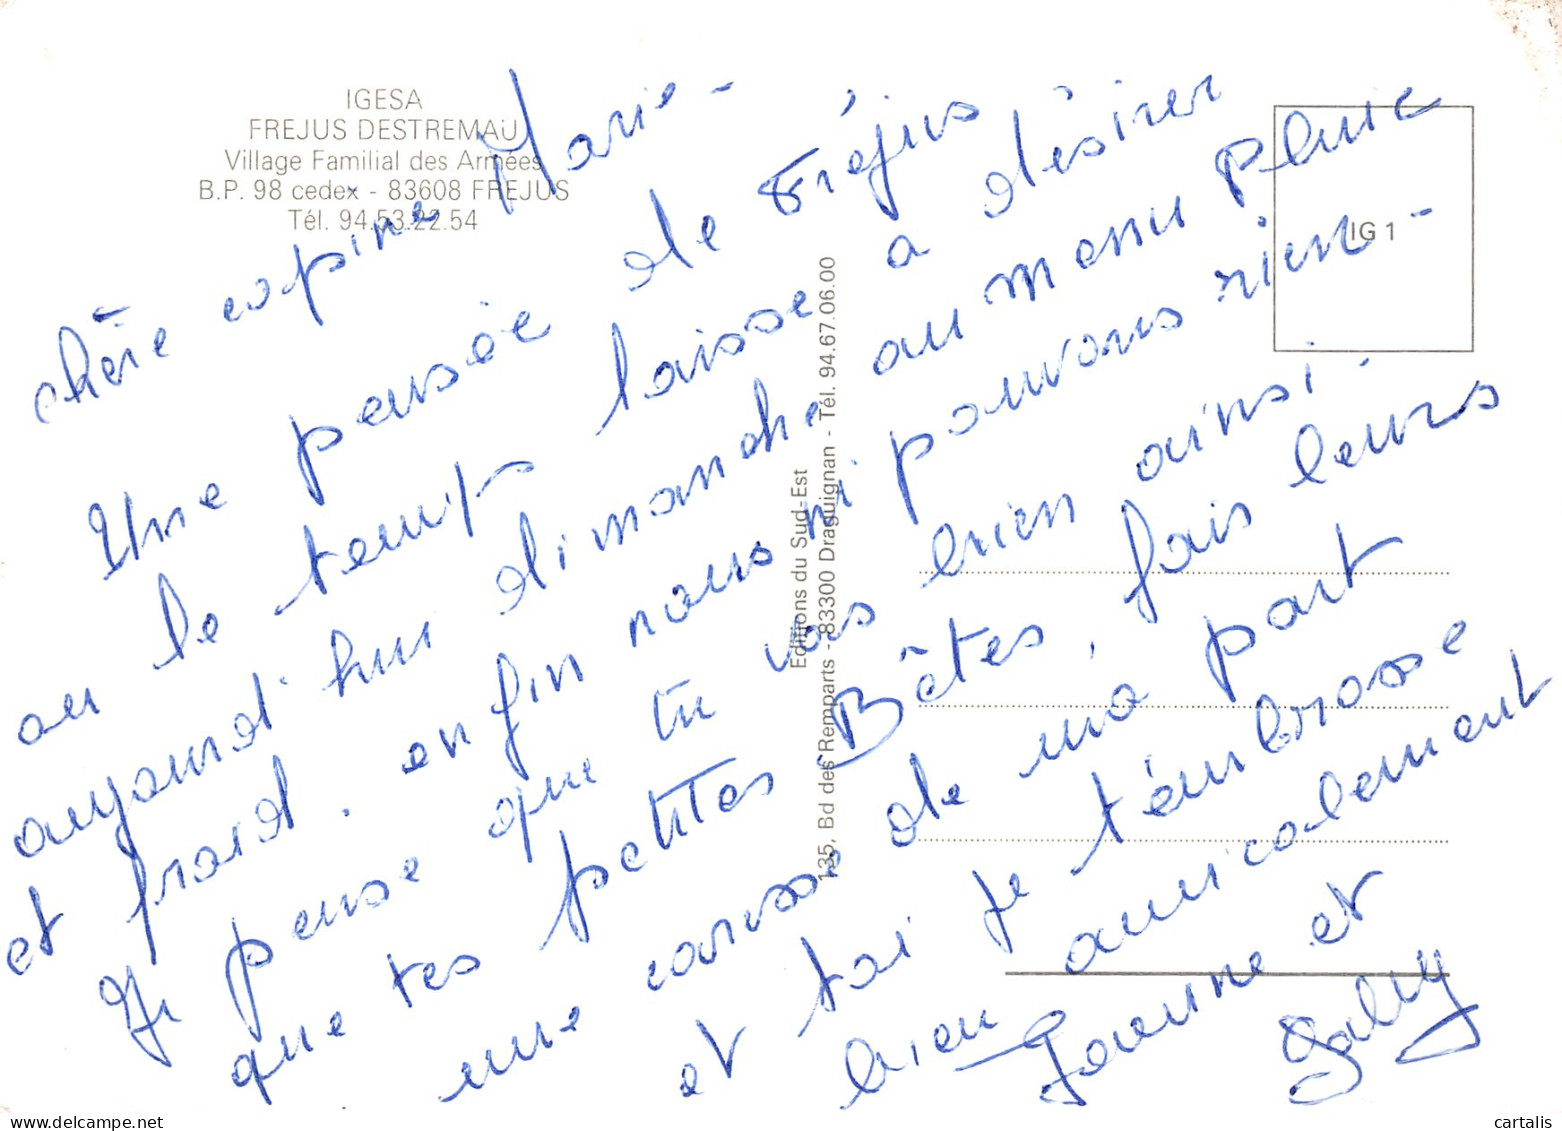 IGESA
FREJUS DESTREMAU
Village Familial des Armées
B.P. 98 cedex - 83608 FREJUS
Tél. 94.53.22.54
IG 1
Editions du Sud-Est
135, Bd des Remparts - 83300 Draguignan - Tél. 94.67.06.00
chère copine Marie -
Une pensée de Fréjus
ou le temps laisse a désirer
aujourd'hui dimanche au menu pluie
et froid. enfin nous ni pouvons rien -
Je pense que tu vas bien ainsi -
que tes petites Bêtes, fais leurs
une caresse de ma part
et toi je t'embrasse
bien amicalement
Jeanne et
Gaby
cartalis